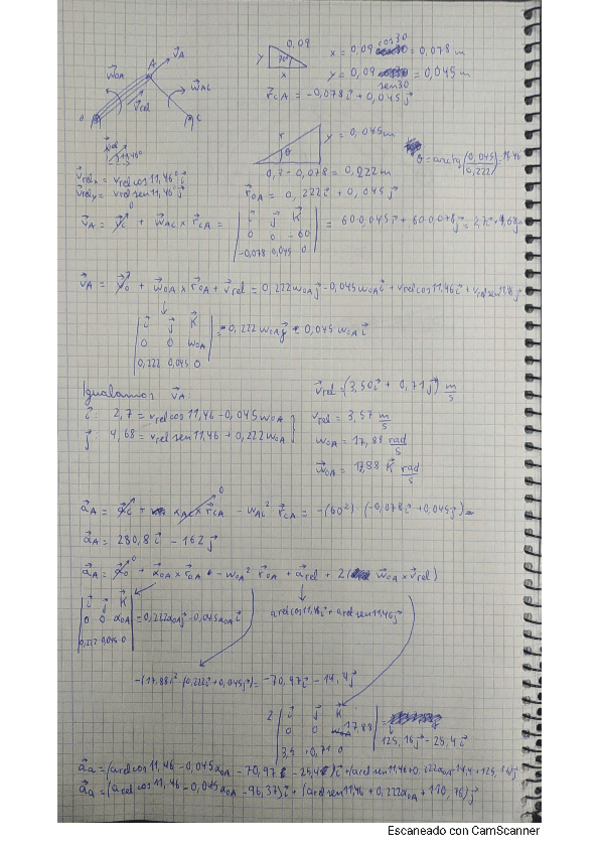 0,09
x = 0,09 cos30 = 0,078 m
y
30°
x
y = 0,09 sen30 = 0,045 m
r⃗CA = -0,078i⃗ + 0,045j⃗
v⃗A
A
w⃗OA
w⃗AC
v⃗rel
O
C
y = 0,045 m
θ
θ = arctg(0,045/0,222) = 11,46°
0,3 - 0,078 = 0,222 m
v⃗relx = vrel cos11,46° i⃗
v⃗rely = vrel sen11,46° j⃗
r⃗OA = 0,222i⃗ + 0,045j⃗
v⃗A = v⃗C + w⃗AC x r⃗CA = | i⃗ j⃗ k⃗ | = 60·0,045i⃗ + 60·0,078j⃗ = 2,7i⃗ + 4,68j⃗
0 0 -60
-0,078 0,045 0
v⃗A = v⃗O + w⃗OA x r⃗OA + v⃗rel = 0,222wOAj⃗ - 0,045wOAi⃗ + vrel cos11,46i⃗ + vrel sen11,46j⃗
| i⃗ j⃗ k⃗ |
0 0 wOA = 0,222 wOAj⃗ - 0,045 wOA i⃗
0,222 0,045 0
Igualamos v⃗A
i⃗: 2,7 = vrel cos11,46 - 0,045wOA
j⃗: 4,68 = vrel sen11,46 + 0,222wOA
v⃗rel = (3,50i⃗ + 0,71j⃗) m/s
vrel = 3,57 m/s
wOA = 17,88 rad/s
w⃗OA = 17,88 k⃗ rad/s
a⃗A = a⃗C + αAC x r⃗CA - wAC² r⃗CA = -(60²)·(-0,078i⃗ + 0,045j⃗) =
a⃗A = 280,8i⃗ - 162j⃗
a⃗A = a⃗O + α⃗OA x r⃗OA - wOA² r⃗OA + a⃗rel + 2( w⃗OA x v⃗rel)
| i⃗ j⃗ k⃗ |
0 0 αOA = 0,222αOAj⃗ - 0,045αOAi⃗
0,222 0,045 0
arel cos11,46i⃗ + arel sen11,46j⃗
-(17,88)²·(0,222i⃗ + 0,045j⃗) = -70,97i⃗ - 14,4j⃗
2 | i⃗ j⃗ k⃗ | =
0 0 17,88
3,5 0,71 0
125,16j⃗ - 25,4i⃗
a⃗a = (arel cos11,46 - 0,045αOA - 70,97 - 25,4)i⃗ + (arel sen11,46 + 0,222αOA - 14,4 + 125,16)j⃗
a⃗a = (arel cos11,46 - 0,045αOA - 96,37)i⃗ + (arel sen11,46 + 0,222αOA + 110,76)j⃗
Escaneado con CamScanner